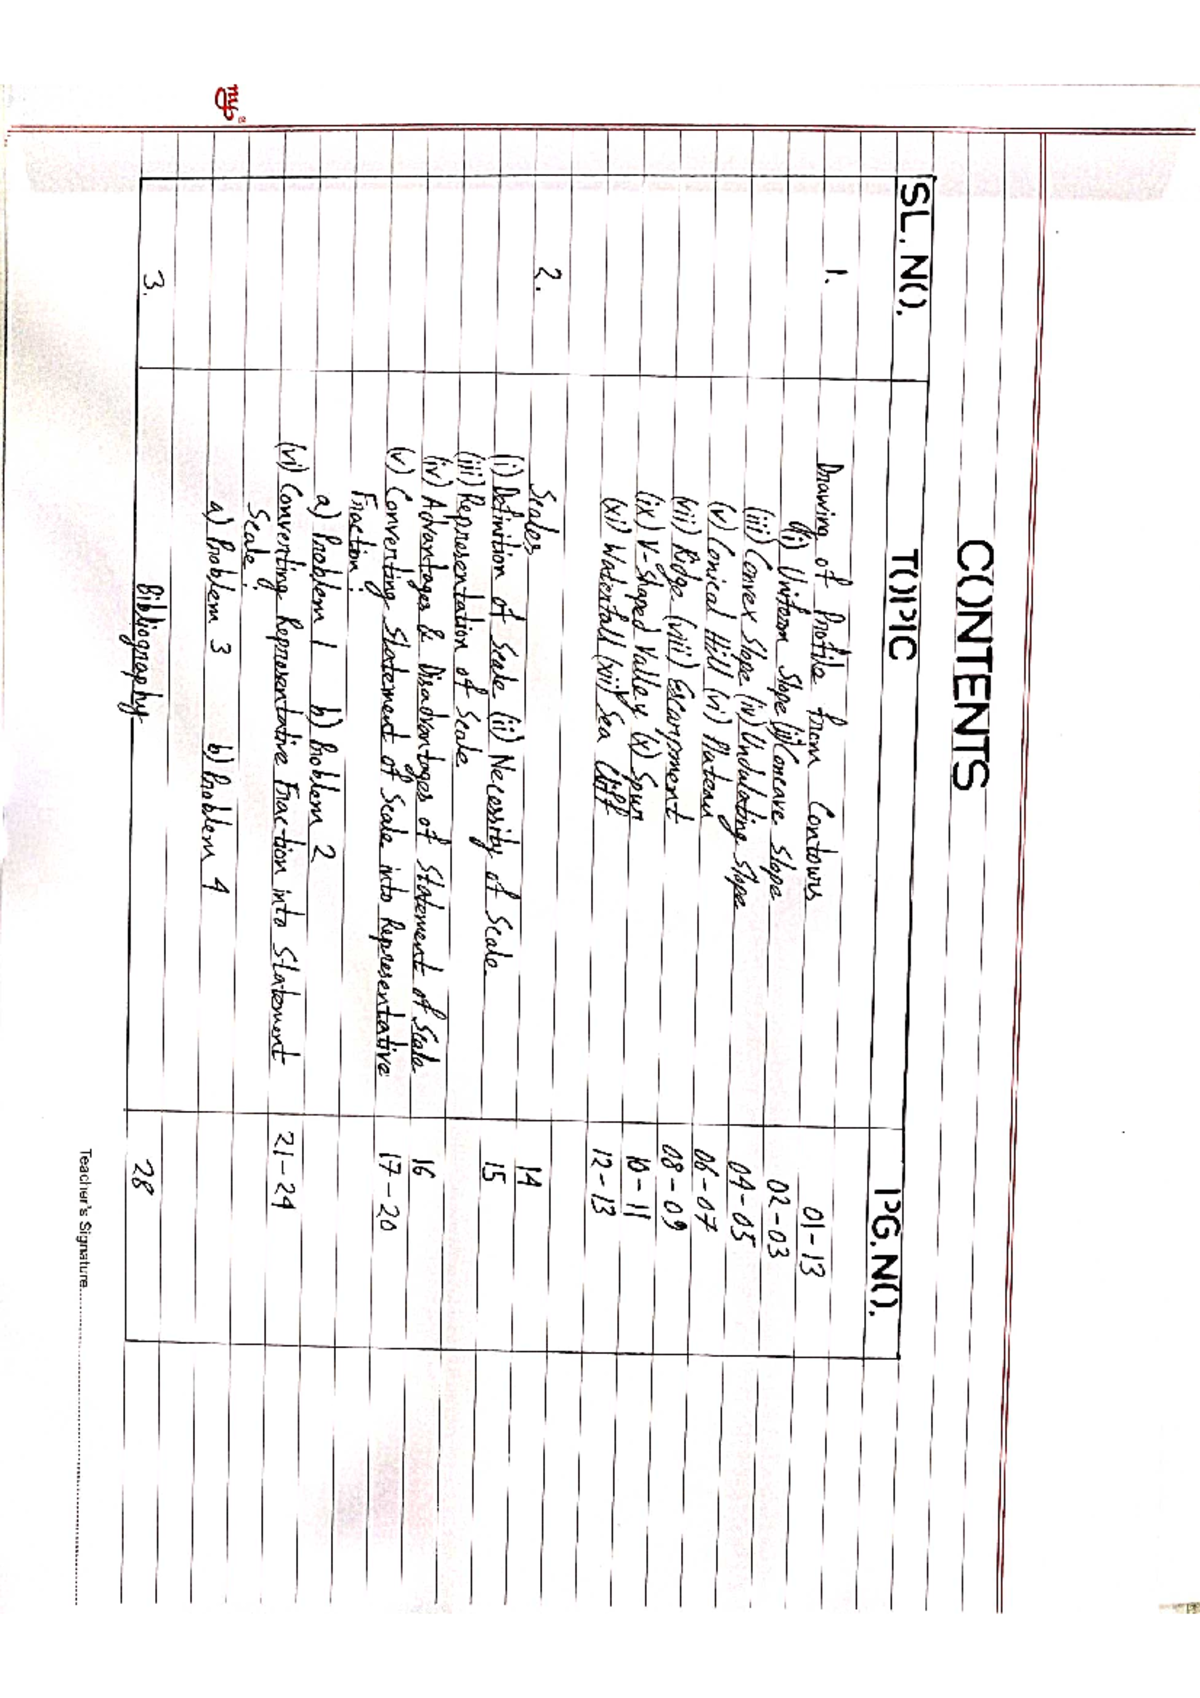 CONTENTS
SL. NO. TOPIC PG. NO.
1. Drawing of Profile from Contours 01-13
(i) Uniform Slope (ii) Concave Slope 02-03
(iii) Convex Slope (iv) Undulating Slope 04-05
(v) Conical Hill (vi) Plateau 06-07
(vii) Ridge (viii) Escarpment 08-09
(ix) V-Shaped Valley (x) Spur 10-11
(xi) Waterfall (xii) Sea Cliff 12-13
2. Scales
(i) Definition of Scale (ii) Necessity of Scale 14
(iii) Representation of Scale 15
(iv) Advantages & Disadvantages of Statement of Scale 16
(v) Converting Statement of Scale into Representative 17-20
Fraction:
a) Problem 1 b) Problem 2
(vi) Converting Representative Fraction into Statement 21-24
Scale:
a) Problem 3 b) Problem 4
3. Bibliography 28
Teacher's Signature